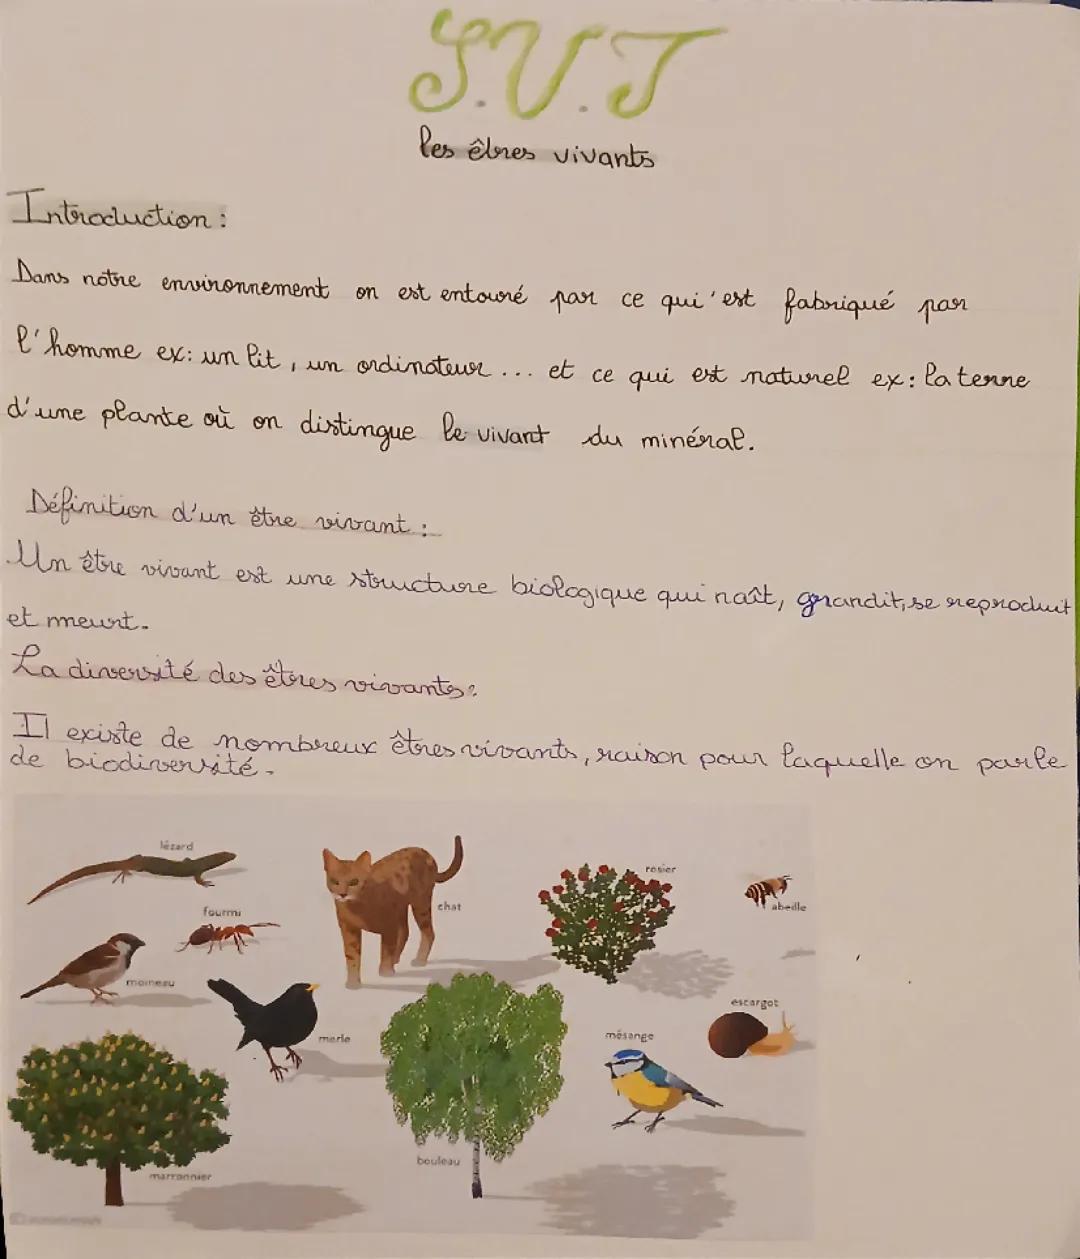 S.V.T
les êtres vivants
Introduction :
Dans notre environnement on est entouré par ce qui'est fabriqué par
l'homme ex: un lit, un ordinateur ... et ce qui est naturel ex: la terre
d'une plante où on distingue le vivant du minéral.
Définition d'un être vivant :
Un être vivant est une structure biologique qui naît, grandit, se reproduit
et meurt.
La diversité des êtres vivants :
Il existe de nombreux êtres vivants, raison pour laquelle on parle
de biodiversité.
lézard
chat
rosier
abeille
fourmi
moineau
merle
mésange
escargot
marronnier
bouleau